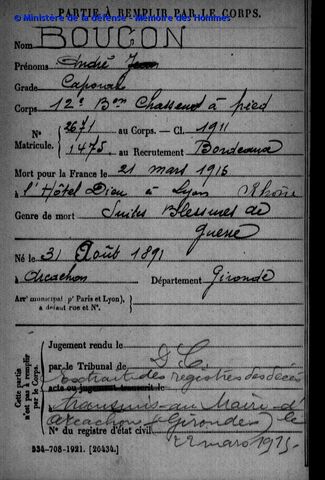 PARTIE À REMPLIR PAR LE CORPS.
© Ministère de la défense - Mémoire des Hommes
Nom BOUGON
Prénoms André Jean
Grade Caporal
Corps 12e Bon Chasseurs à pied
N° 2671 au Corps. — Cl. 1911
Matricule. 1475 au Recrutement Bordeaux
Mort pour la France le 21 mars 1915
à l'Hôtel Dieu à Lyon Rhône
Genre de mort Suites Blessures de
Guerre
Né le 31 Août 1891
à Arcachon Département Gironde
Arrt municipal (pr Paris et Lyon),
à défaut rue et N°.
Cette partie n'est pas à remplir par le Corps.
Jugement rendu le
par le Tribunal de D C
acte ou jugement transcrit le Extrait des registres des décès
transmis au Maire d'
Arcachon (Gironde) le
N° du registre d'état civil 22 mars 1915
534-708-1921. [26434.]